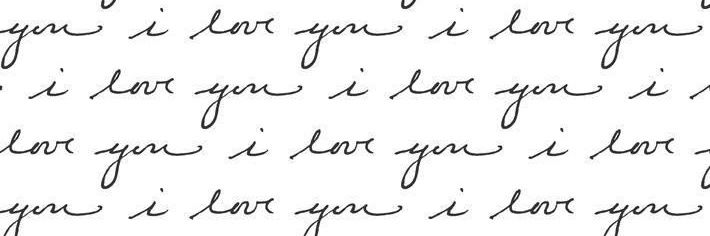 you i love you i love you
i love you i love you i
love you i love you i love
you i love you i love you